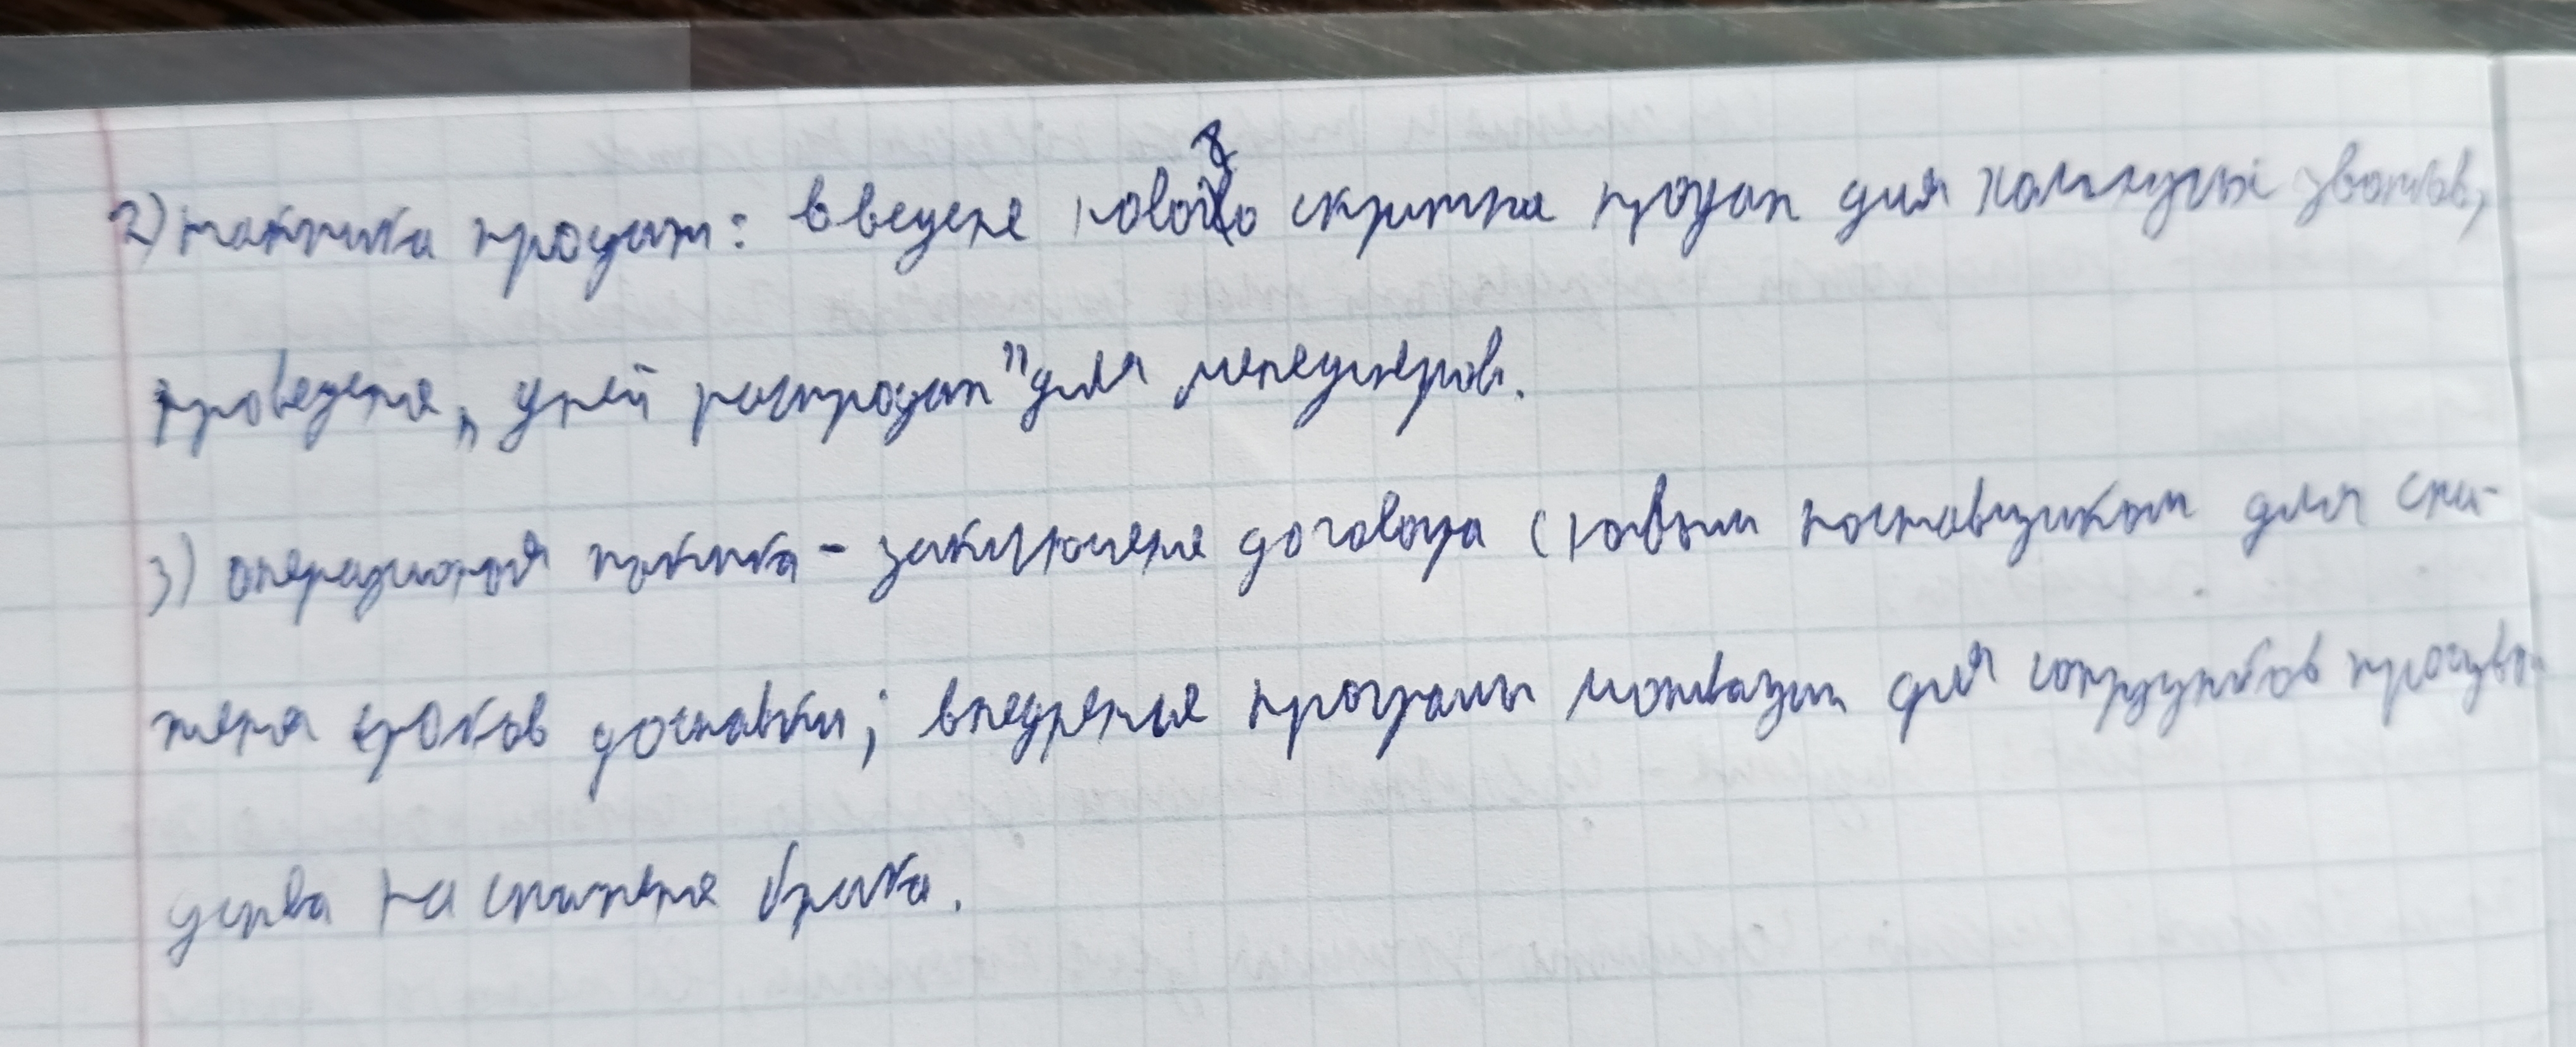 2) тактика продаж: введение нового скрипта продаж для холодных звонков,
проведение „дней распродаж" для менеджеров.
3) операционная тактика - заключение договора с новым поставщиком для сни-
жения сроков доставки; внедрение программы мотивации для сотрудников производ-
дства на снижение брака.